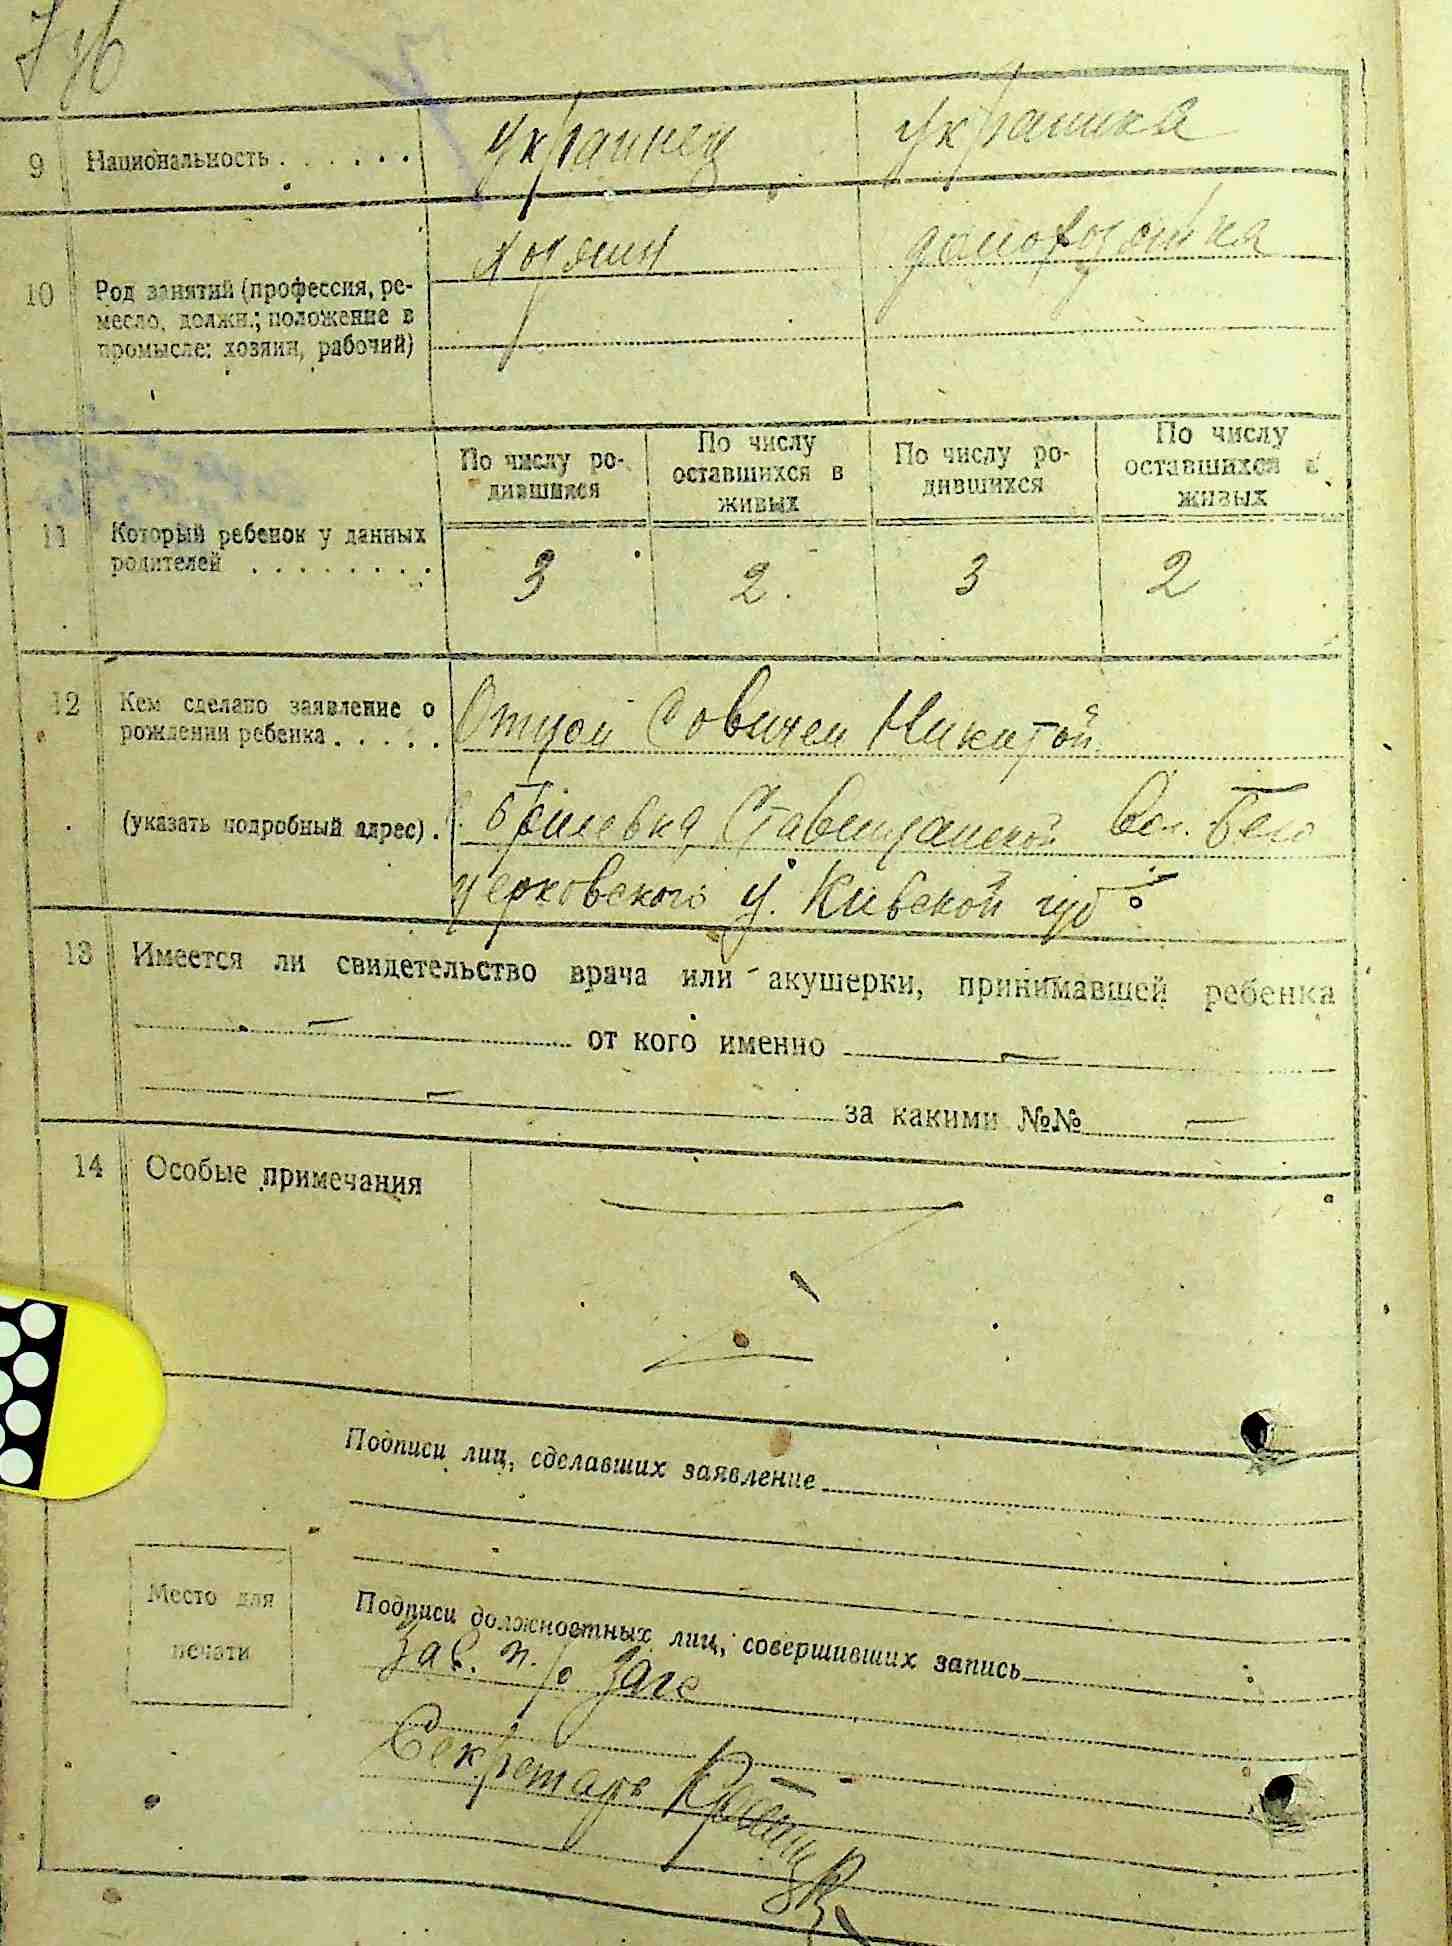 9 Национальность . . . . . . украинец украинка
хозяин домохозяйка
10 Род занятий (профессия, ре-
месло, должн.; положение в
промысле: хозяин, рабочий)
По числу ро-
дившихся
По числу
оставшихся в
живых
По числу ро-
дившихся
По числу
оставшихся в
живых
11 Который ребенок у данных
родителей . . . . . . . .
3 2 3 2
12 Кем сделано заявление о Отцом Совичем Никитой
рождении ребенка . . . . .
(указать подробный адрес) . Ставищанской Вол. Бело
церковского у. Киевской губ
13 Имеется ли свидетельство врача или акушерки, принимавшей ребенка
— от кого именно —
— за какими №№ —
14 Особые примечания
Подписи лиц, сделавших заявление
Место для
печати
Подписи должностных лиц, совершивших запись
Зав. п/о Загс
Секретарь